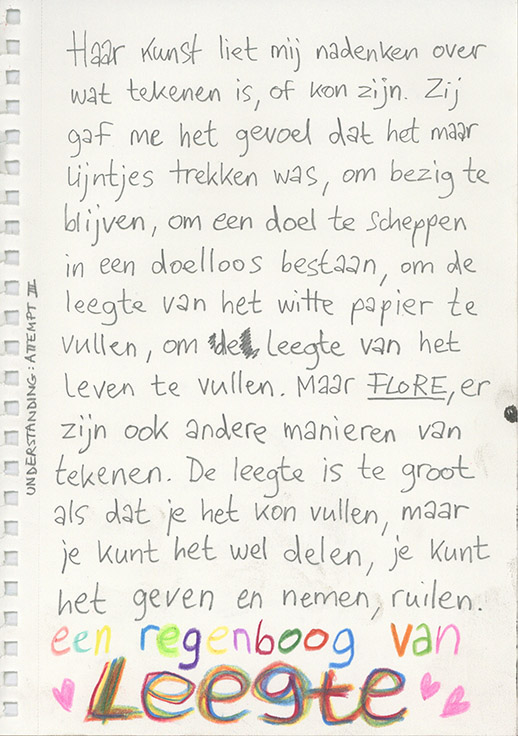 Haar kunst liet mij nadenken over
wat tekenen is, of kon zijn. Zij
gaf me het gevoel dat het maar
lijntjes trekken was, om bezig te
blijven, om een doel te scheppen
in een doelloos bestaan, om de
leegte van het witte papier te
vullen, om de leegte van het
leven te vullen. Maar FLORE, er
zijn ook andere manieren van
tekenen. De leegte is te groot
als dat je het kon vullen, maar
je kunt het wel delen, je kunt
het geven en nemen, ruilen.
een regenboog van
Leegte
UNDERSTANDING: ATTEMPT III